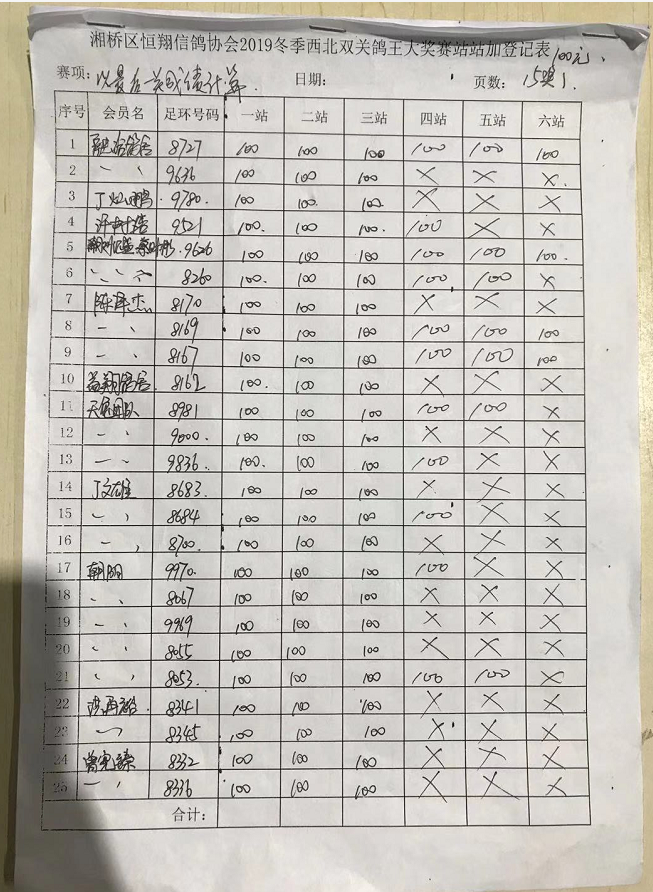 湘桥区恒翔信鸽协会2019冬季西北双关鸽王大奖赛站站加登记表 100元
赛项: 以最后关成绩计算. 日期: 页数: 15奖
序号 会员名 足环号码 一站 二站 三站 四站 五站 六站
1 8727 100 100 100 100 100 100
2 〃 9636 100 100 100 × × ×
3 9780 100 100 100 × × ×
4 9521 100 100 100 100 × ×
5 9626 100 100 100 100 100 100
6 〃 8260 100 100 100 100 100 ×
7 陈泽杰 8170 100 100 100 × × ×
8 〃 8169 100 100 100 100 100 100
9 〃 8167 100 100 100 100 100 100
10 益翔鸽舍 8162 100 100 100 × × ×
11 8981 100 100 100 100 100 ×
12 〃 9000 100 100 100 × × ×
13 〃 9836 100 100 100 100 × ×
14 丁文雄 8683 100 100 100 × × ×
15 〃 8684 100 100 100 100 × ×
16 〃 8700 100 100 100 × × ×
17 朝阳 9970 100 100 100 100 × ×
18 〃 8067 100 100 100 × × ×
19 〃 9969 100 100 100 × × ×
20 〃 8055 100 100 100 × × ×
21 〃 8053 100 100 100 100 100 ×
22 8341 100 100 100 × × ×
23 〃 8345 100 100 100 × × ×
24 8332 100 100 100 × × ×
25 〃 8336 100 100 100 × × ×
合计: